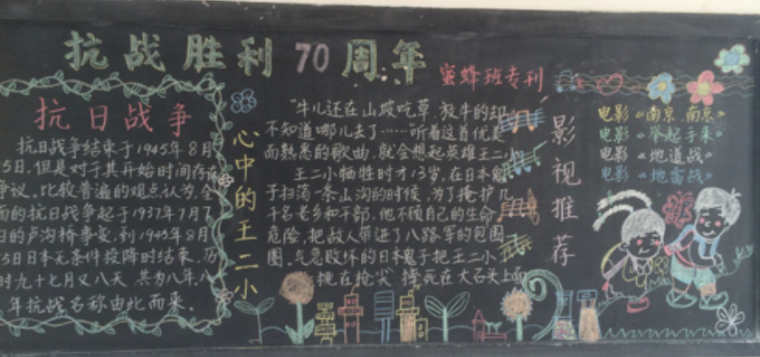 抗战胜利70周年
蜜蜂班专刊
抗日战争
抗日战争结束于1945年8月
5日,但是对于其开始时间存在
争议,比较普遍的观点认为,全
面的抗日战争起于1937年7月7
日的卢沟桥事变,到1945年8月
5日日本无条件投降时结束,历
时九十七月又八天,共为八年,八
年抗战名称由此而来。
心中的王二小
"牛儿还在山坡吃草,放牛的却
不知道哪儿去了……听着这首优美
而熟悉的歌曲,就会想起英雄王二小
王二小牺牲时才13岁,在日本鬼
子扫荡一条山沟的时候,为了掩护几
千名老乡和干部,他不顾自己的生命
危险,把敌人带进了八路军的包围
圈,气急败坏的日本鬼子把王二小
挑在枪尖 摔死在大石头上面
影视推荐
电影《南京南京》
电影《举起手来》
电影《地道战》
电影《地雷战》